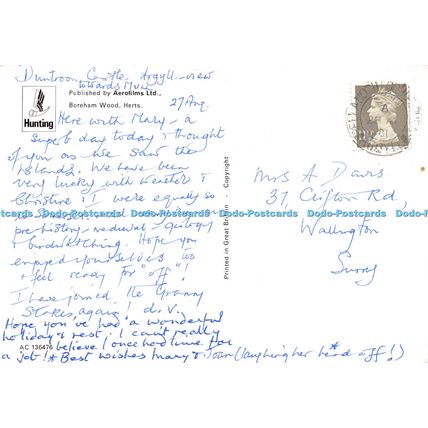 Duntroon Castle Argyll - view
towards Mull
Published by Aerofilms Ltd.,
Boreham Wood, Herts.
Hunting
27 Aug.
Here with Mary - a
superb day today & thought
of you as we saw the
islands. We have been
very lucky with weather &
Christine & I were equally so
prehistory - medieval -
& birdwatching. Hope you
enjoyed yourselves
& feel ready for "off"!
I have joined the Granny
Stakes, again! d.v.
Hope you've had a wonderful
holiday & rest; I can't really
believe I once had time for
a job!* Best wishes Mary & Joan (laughing her head* off!)
AC 136476
Printed in Great Britain - Copyright
Mrs A Davis
37, Clifton Rd,
Dodo-Postcards Dodo-Postcards Dodo-Postcards Dodo-Postcards Dodo-Postcards
Wallington
Surry